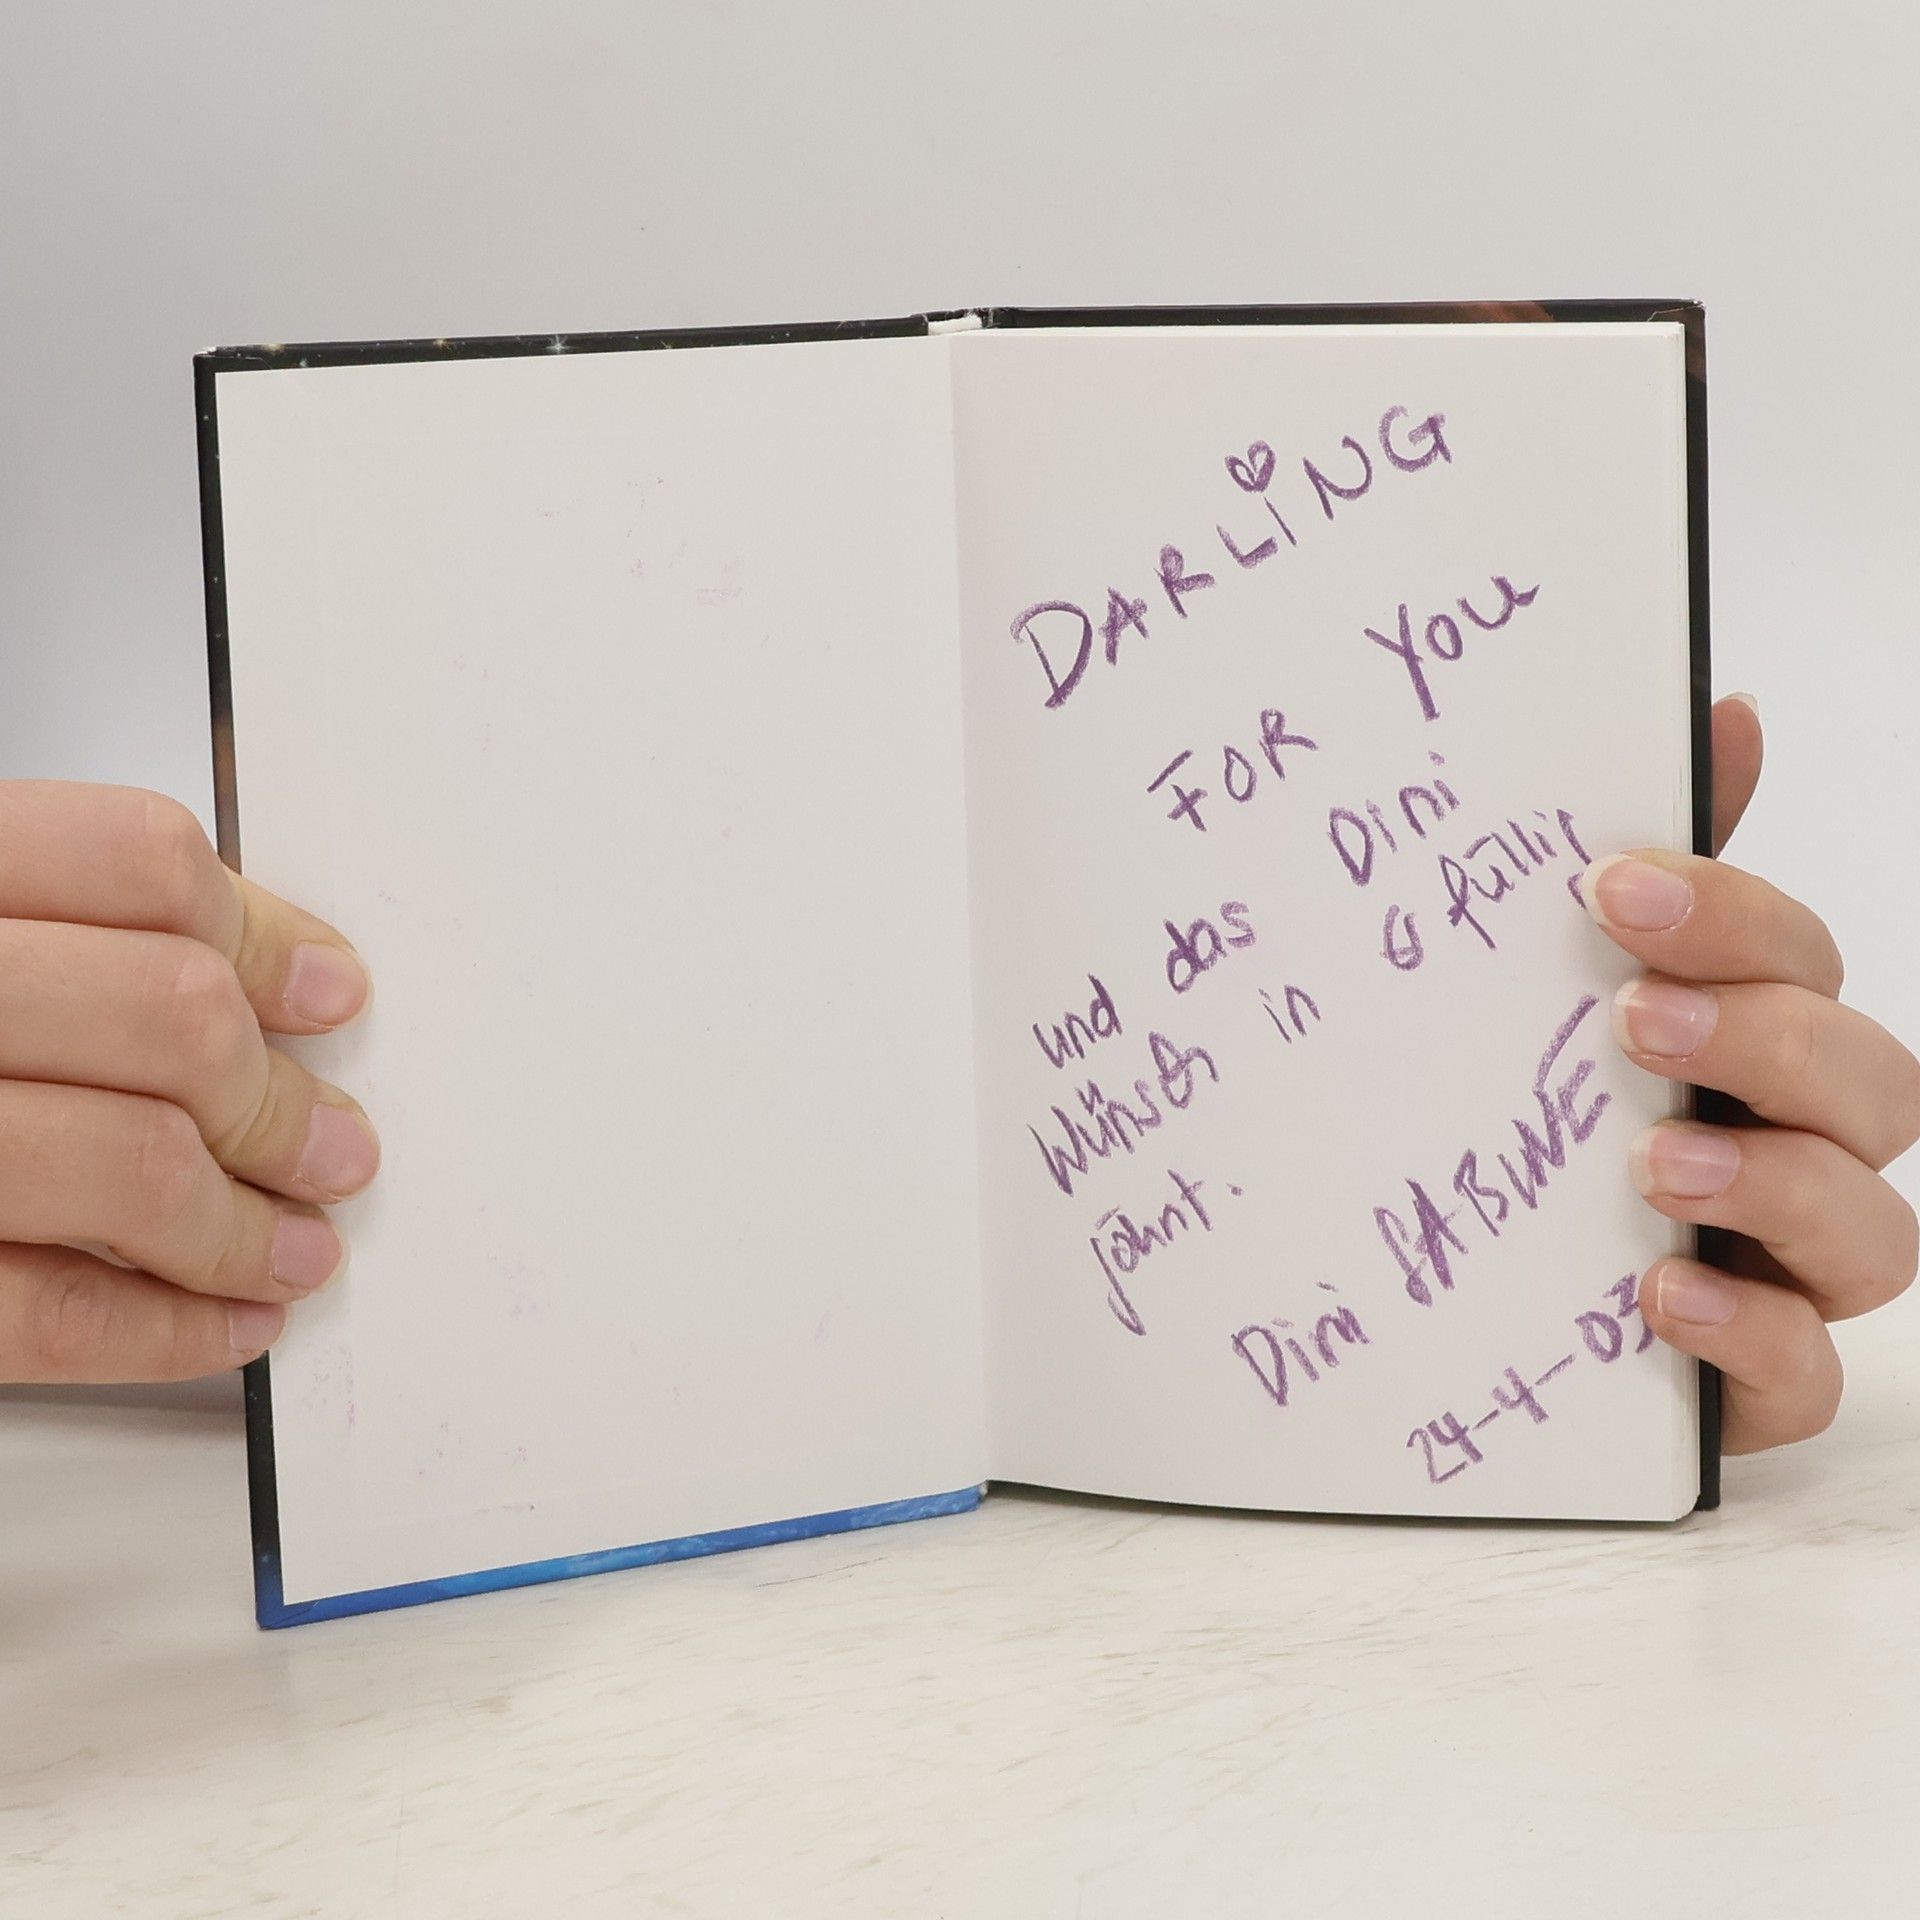 DARLING
FOR YOU
und das Dini
Wünsch in
Dini SABINE
24-4-03